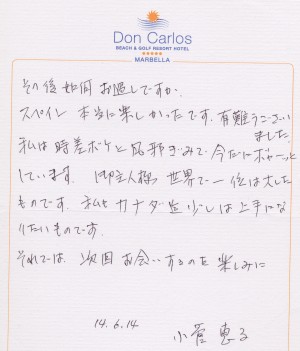 Don Carlos
BEACH & GOLF RESORT HOTEL
★★★★★
MARBELLA
その後如何お過しですか。
スペイン本当に楽しかったです。有難うございました。
私は時差ボケと風邪ぎみで今だにボャーッと
しています。御主人様世界で一位は大した
ものです。私もカナダ迄少しは上手にな
りたいものです。
それでは次回お会いするのを楽しみに
14.6.14
小菅 恵子